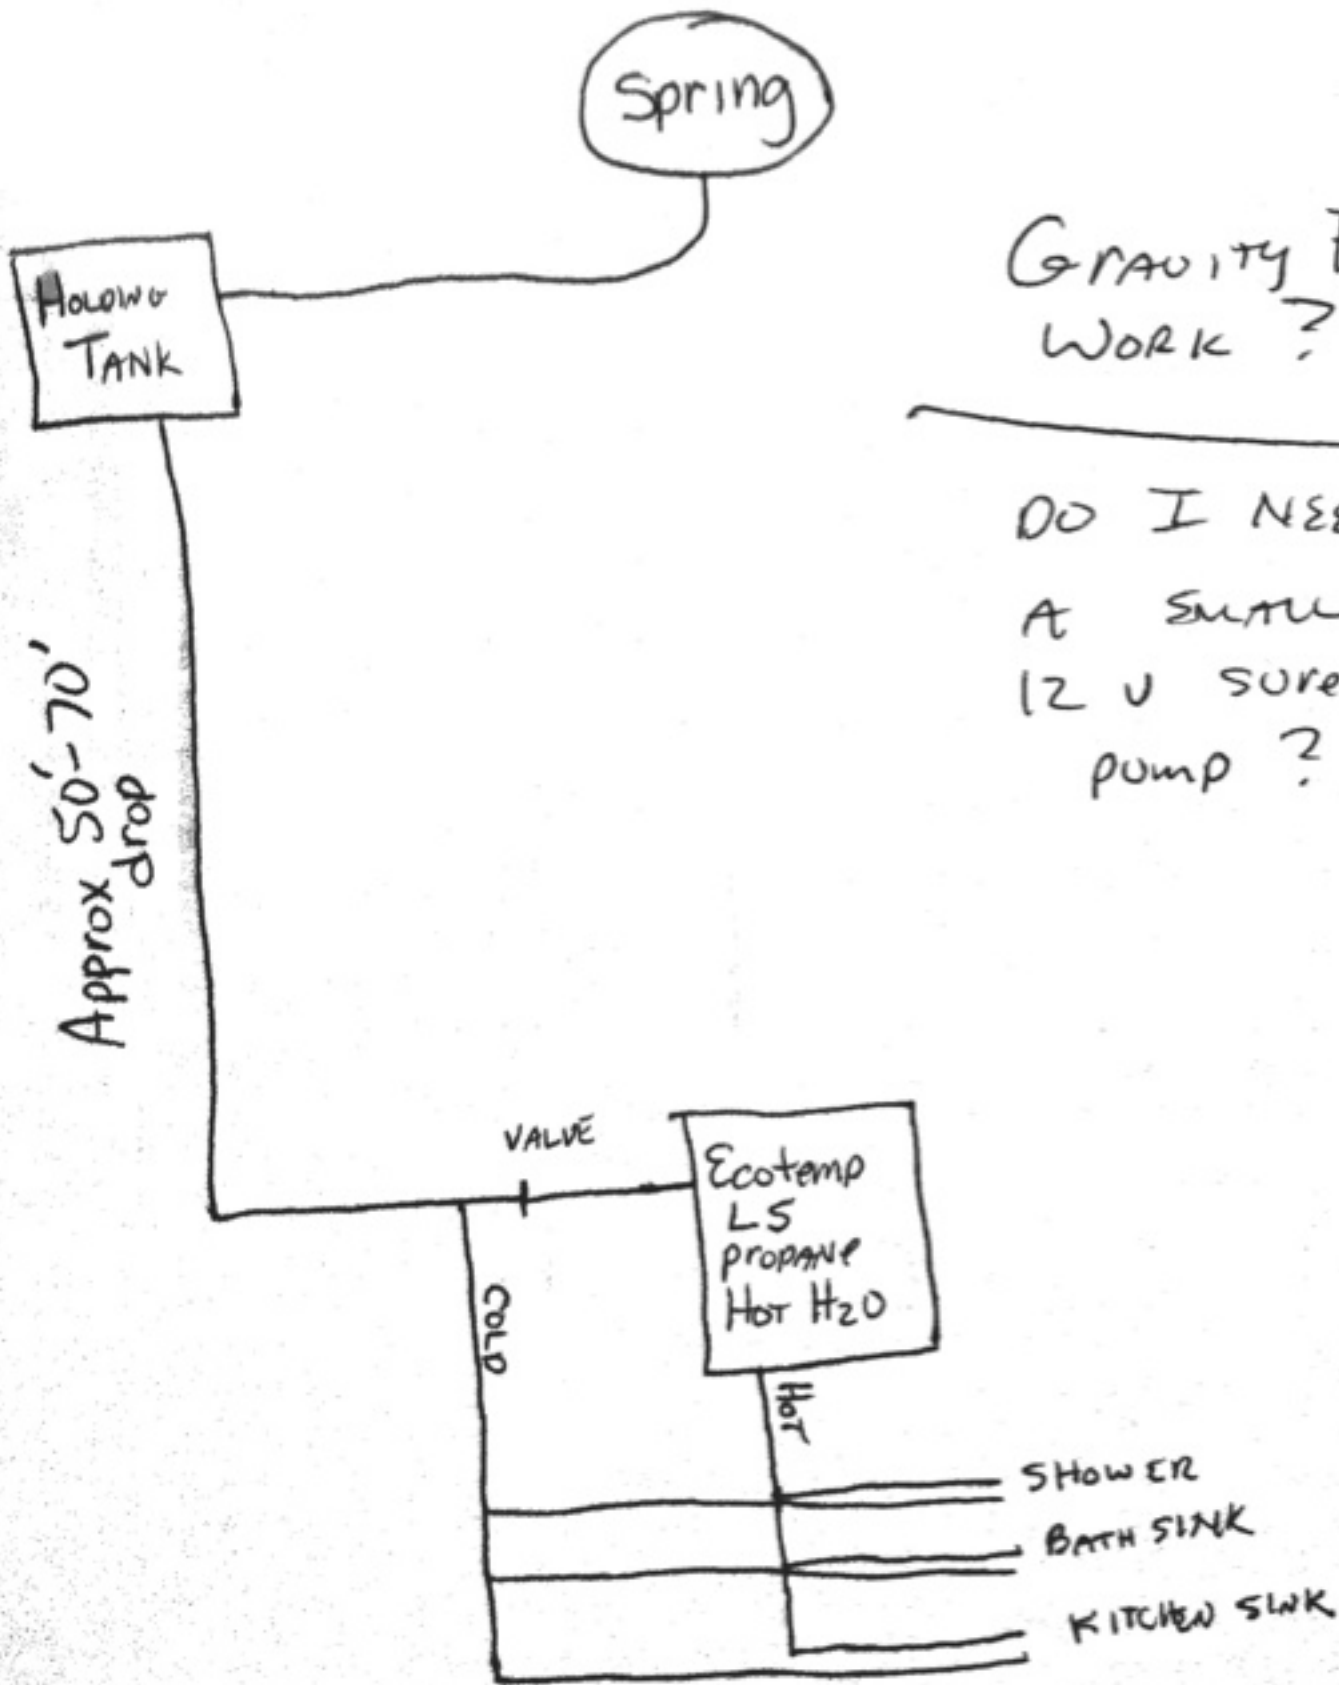 Spring
HOLDING
TANK
GRAVITY
WORK ?
DO I
A SMALL
12 V
pump ?
Approx 50'-70'
drop
VALVE
Ecotemp
L5
PROPANE
HOT H2O
COLD
HOT
SHOWER
BATH SINK
KITCHEN SINK